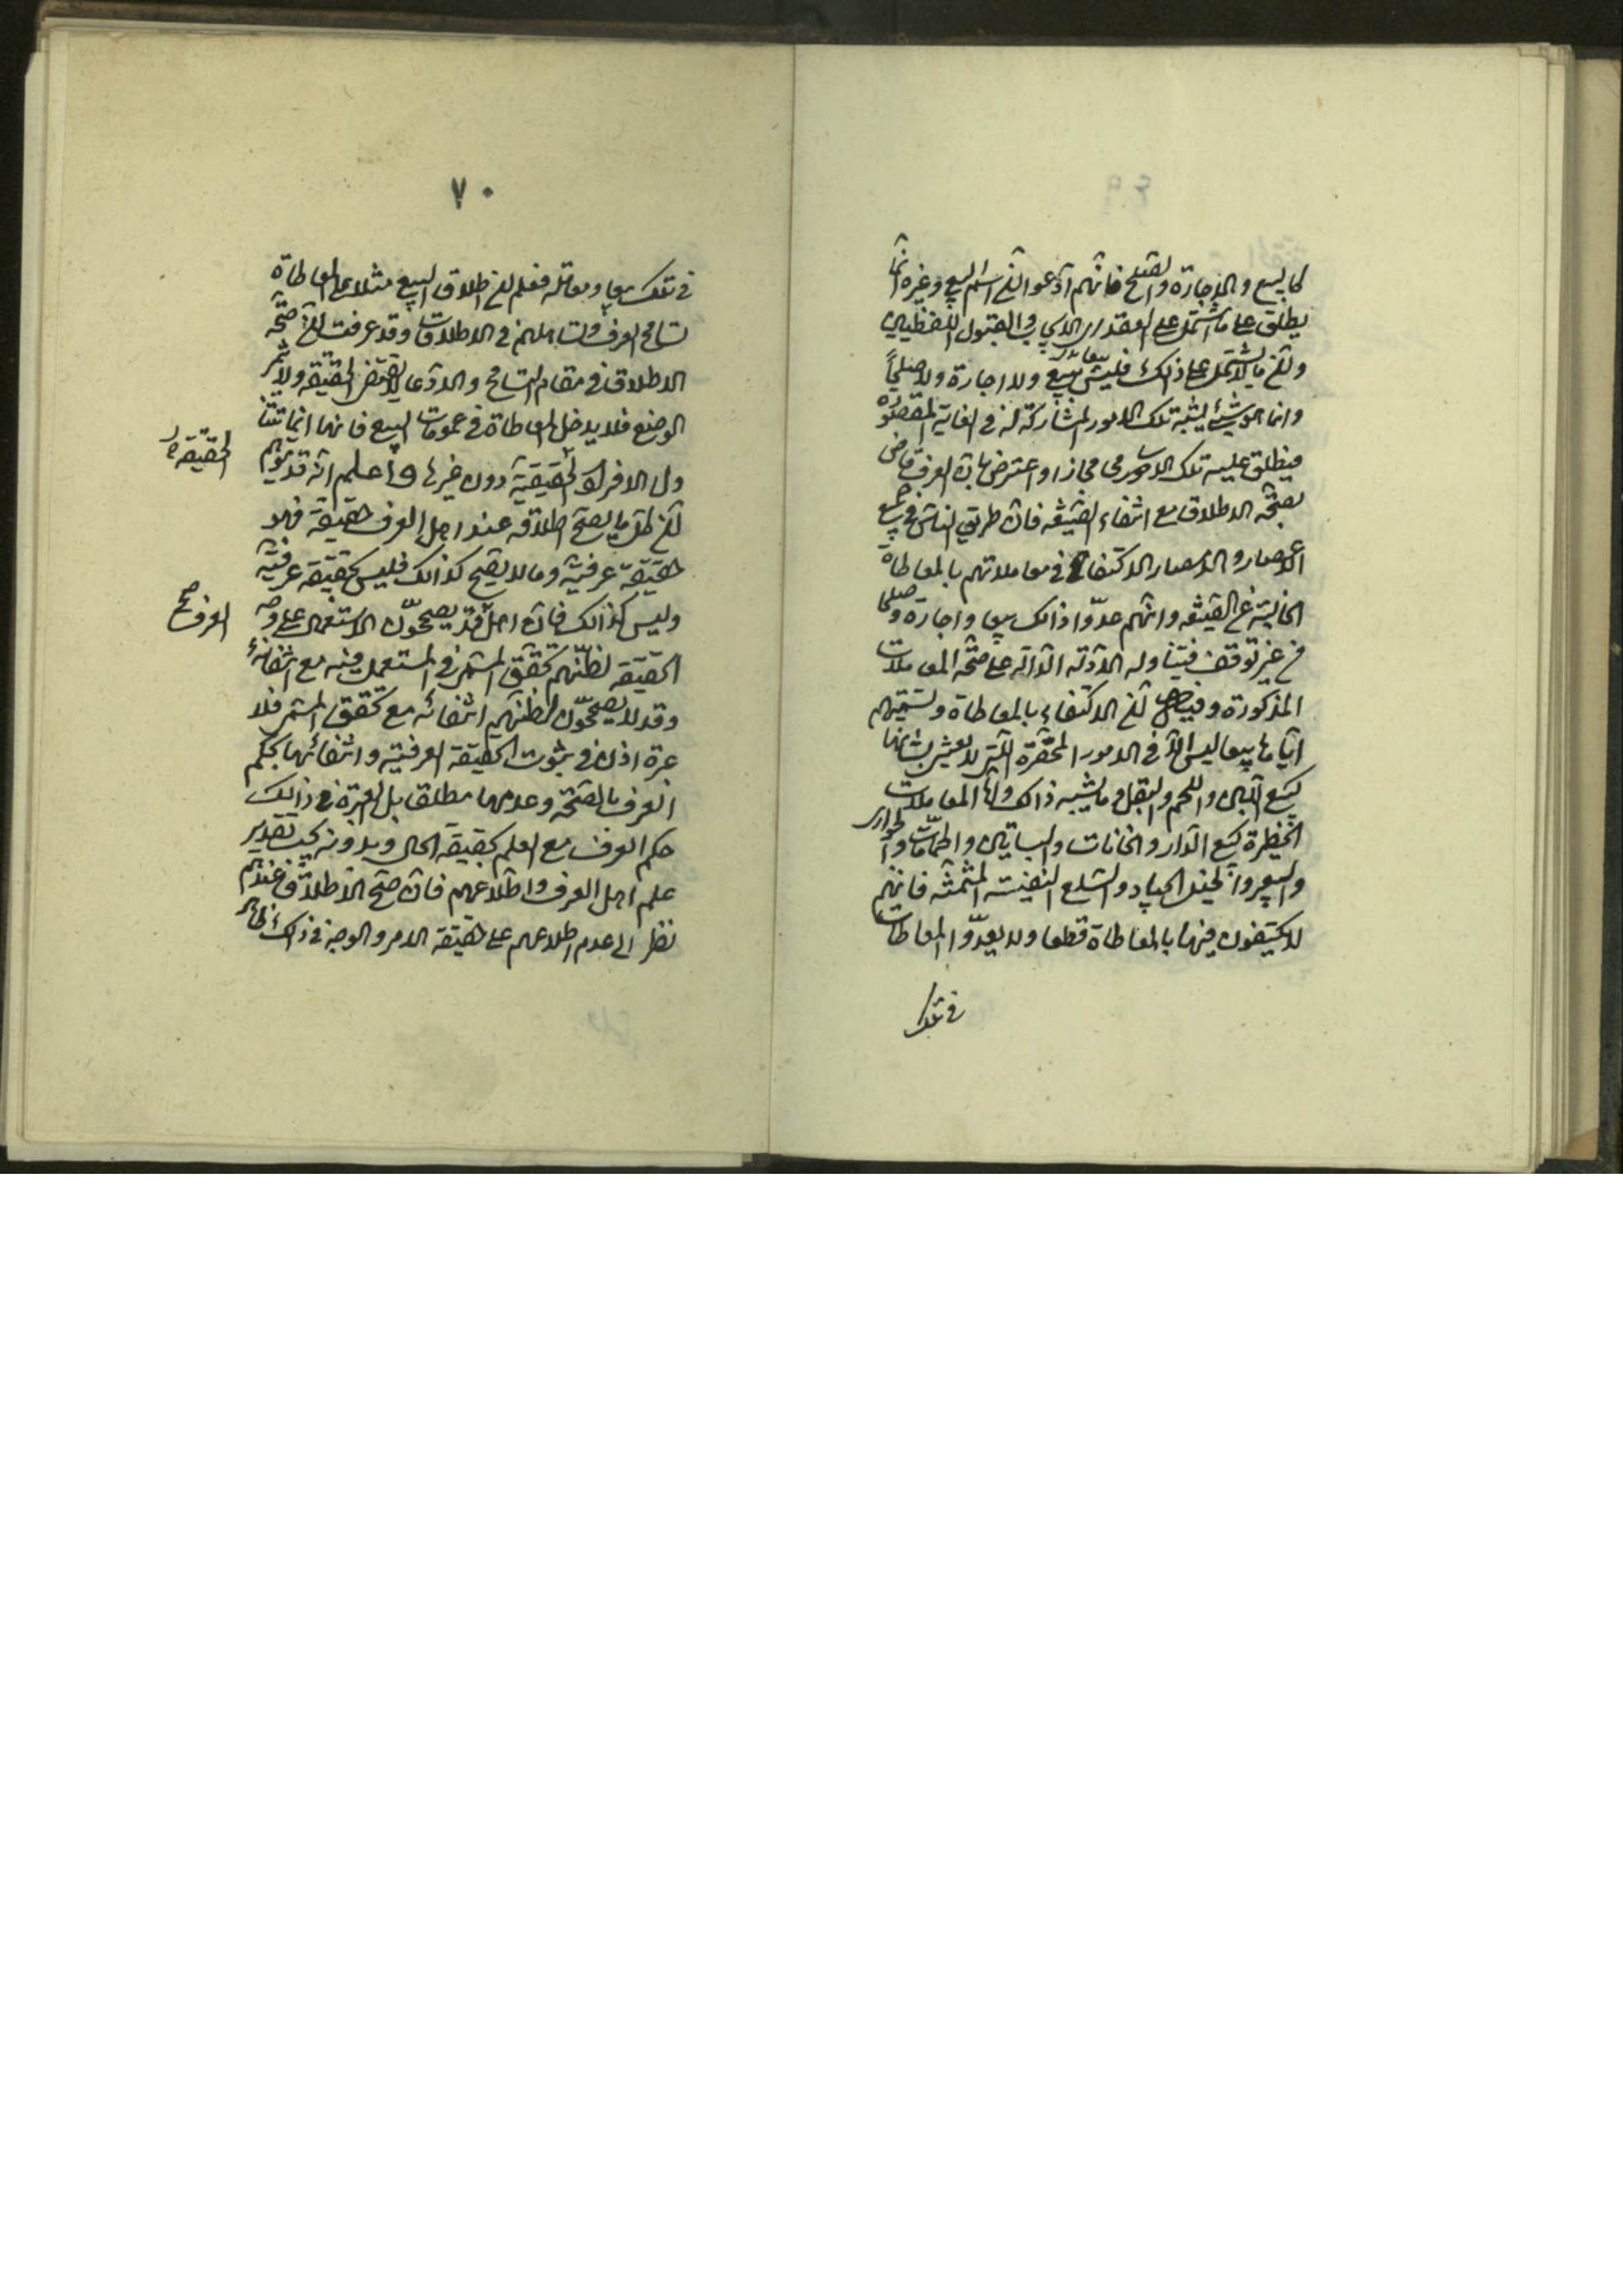 كالبيع والاجارة والصلح فانهم ادعوا ان اسم البيع وغيره انما
يطلق على ما اشتمل على العقد اى الايجاب والقبول اللفظيين
وان ما لا يشتمل على ذلك فليس ببيع ولا اجارة ولا صلحاً
وانما هو شيئ يشبه تلك الامور لمشاركته له فى الغاية المقصودة
فيطلق عليه تلك الاسامى مجازا واعترض بان العرف قاض
بصحة الاطلاق مع انتفاء الصيغه فان طريق الناس فى جميع
الاعصار والامصار الاكتفاء فى معاملاتهم بالمعاطاة
الخالية عن الصيغه وانهم عدّوا ذالك بيعا واجارة وصلحا
من غير توقف فيتناوله الادلة الدالة على صحة المعاملات
المذكورة وفيه ان الاكتفاء بالمعاطاة وتسميتهم
اياها بيعا ليس الا فى الامور المحقّرة التى لا يعتنى بشانها
كبيع اللبن واللحم والبقل وما يشبه ذالك واما المعاملات
الخطيرة كبيع الدار والخانات والبساتين والحمّامات والجوارى
والعبيد والخيل الجياد والسلع النفيسة المثمنة فانهم
لا يكتفون فيها بالمعاطاة قطعا ولا يعدّوا المعاطات
فى تلك
٧٠
فى تلك بيعا ومعاملة فعلم ان اطلاق البيع مثلا على المعاطاة
تسامح العرف وتساهلهم فى الاطلاقات وقد عرفت ان صحّة
الاطلاق فى مقام التسامح والادّعا لا يقتضى الحقيقة ولا يثمر
الوضع فلا يدخل المعاطاة فى عمومات البيع فانها انما تتنا
ول الافراد الحقيقية دون غيرها واعلم انه قد يتوهم
ان كل ما يصح اطلاقه عند اهل العرف حقيقة فهو
حقيقة عرفية وما لا يصح كذالك فليس بحقيقة عرفية
وليس كذالك فان اهل قد يصحّحون الاستعمال على وجه
العرف صح
الحقيقة لظنّهم تحقق المسمى فى المستعمل فيه مع انتفائه
وقد لا يصحّحون لظنهم انتفائه مع تحقق المسمى فلا
عبرة اذن فى ثبوت الحقيقة العرفية وانتفائها بحكم
العرف بالصحّة وعدمها مطلقا بل العبرة فى ذالك
حكم العرف مع العلم بحقيقة الحال وبدونه يجب تقدير
علم اهل العرف واطلاعهم فان صحّ الاطلاق عندهم
نظرا الى عدم اطلاعهم على حقيقة الامر والوجه فى ذالك ظاهر